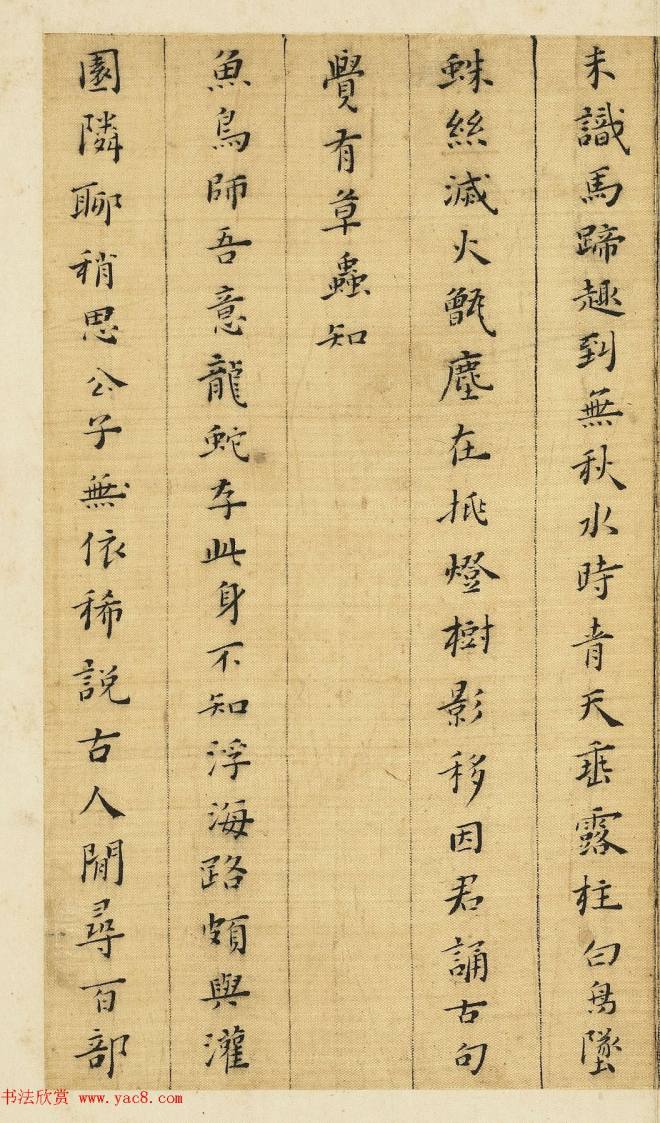 未識馬蹄趣到無秋水時青天垂露柱白鳥墜
蛛絲滅火甑塵在挑燈樹影移因君誦古句
覺有草蟲知
魚鳥師吾意龍蛇存此身不知浮海路頗與灌
園隣聊稍思公子無依稀說古人閒尋百部
书法欣赏 www.yac8.com